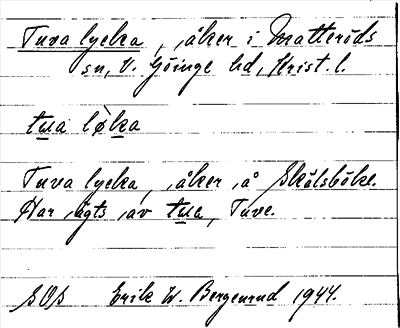 Tuva lycka, åker i Matteröds
sn, V. Göinge hd, Krist. l.
tua lø̀ka
Tuva lycka, åker å Skölsböke.
Har ägts av tua, Tuve.
SOS Erik W. Bergenrud 1944.